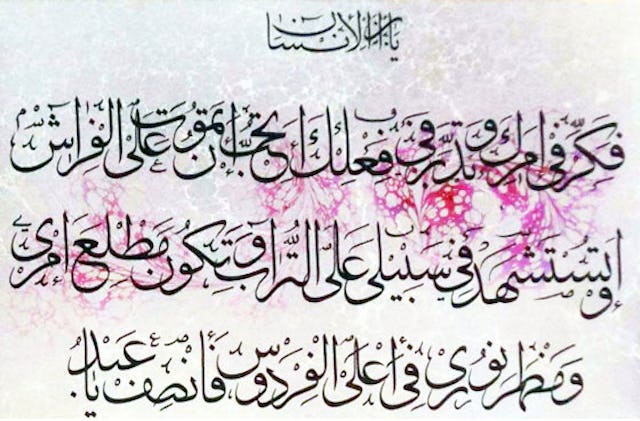 يا ابن الانسان
فكر في امرك وتدبر في فعلك أتحب أن تموت على الفراش
او تستشهد في سبيلي على التراب وتكون مطلع امري
ومظهر نوري في اعلى الفردوس فأنصف يا عبد